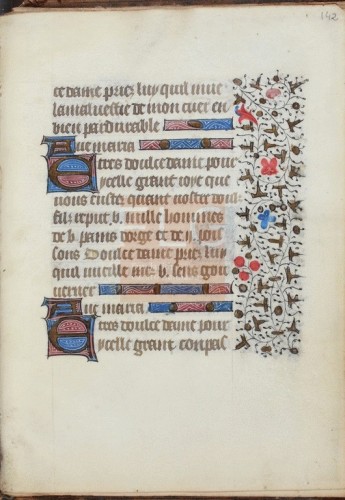 142
ce dame priez luy quil mue
la mauvestie de mon cuer en
bien pardurable
Ave maria
E tres doulce dame pour
ycelle grant ioye que
vous eustes quant vostre doulz
filz reput .v. mille hommes
de .v. pains dorge et de .ij. pois
sons Doulce dame priez luy
quil vueille mes .v. sens gou
verner
Ave maria
E tres doulce dame pour
ycelle grant conpas